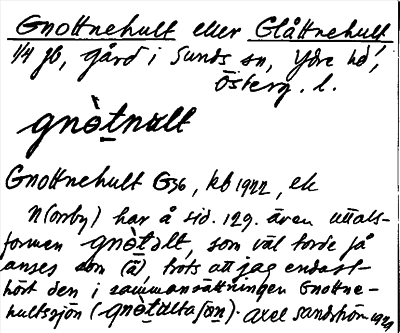 Gnottnehult eller Glåttnehult
1/4 jb, gård i Sunds sn, Ydre hd,
Österg. l.
gnòtnult
Gnottnehult G36, kb 1922, ek
N(orrby) har å sid. 129. även uttals-
formen gnòtølt, som väl torde få
anses som (ä), trots att jag endast
hört den i sammansättningen Gnottne-
hultssjön (gnòtølta ʃøn). Axel Sandström 1924